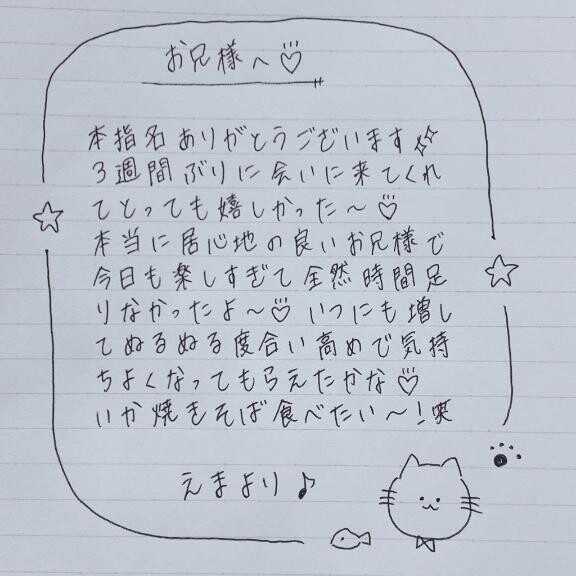 お兄様へ♡
本指名ありがとうございます✨
3週間ぶりに会いに来てくれ
てとっても嬉しかった〜♡
本当に居心地の良いお兄様で
今日も楽しすぎて全然時間足
りなかったよ〜♡ いつにも増し
てぬるぬる度合い高めで気持
ちよくなってもらえたかな♡
いか焼きそば食べたい〜!笑
えまより♪